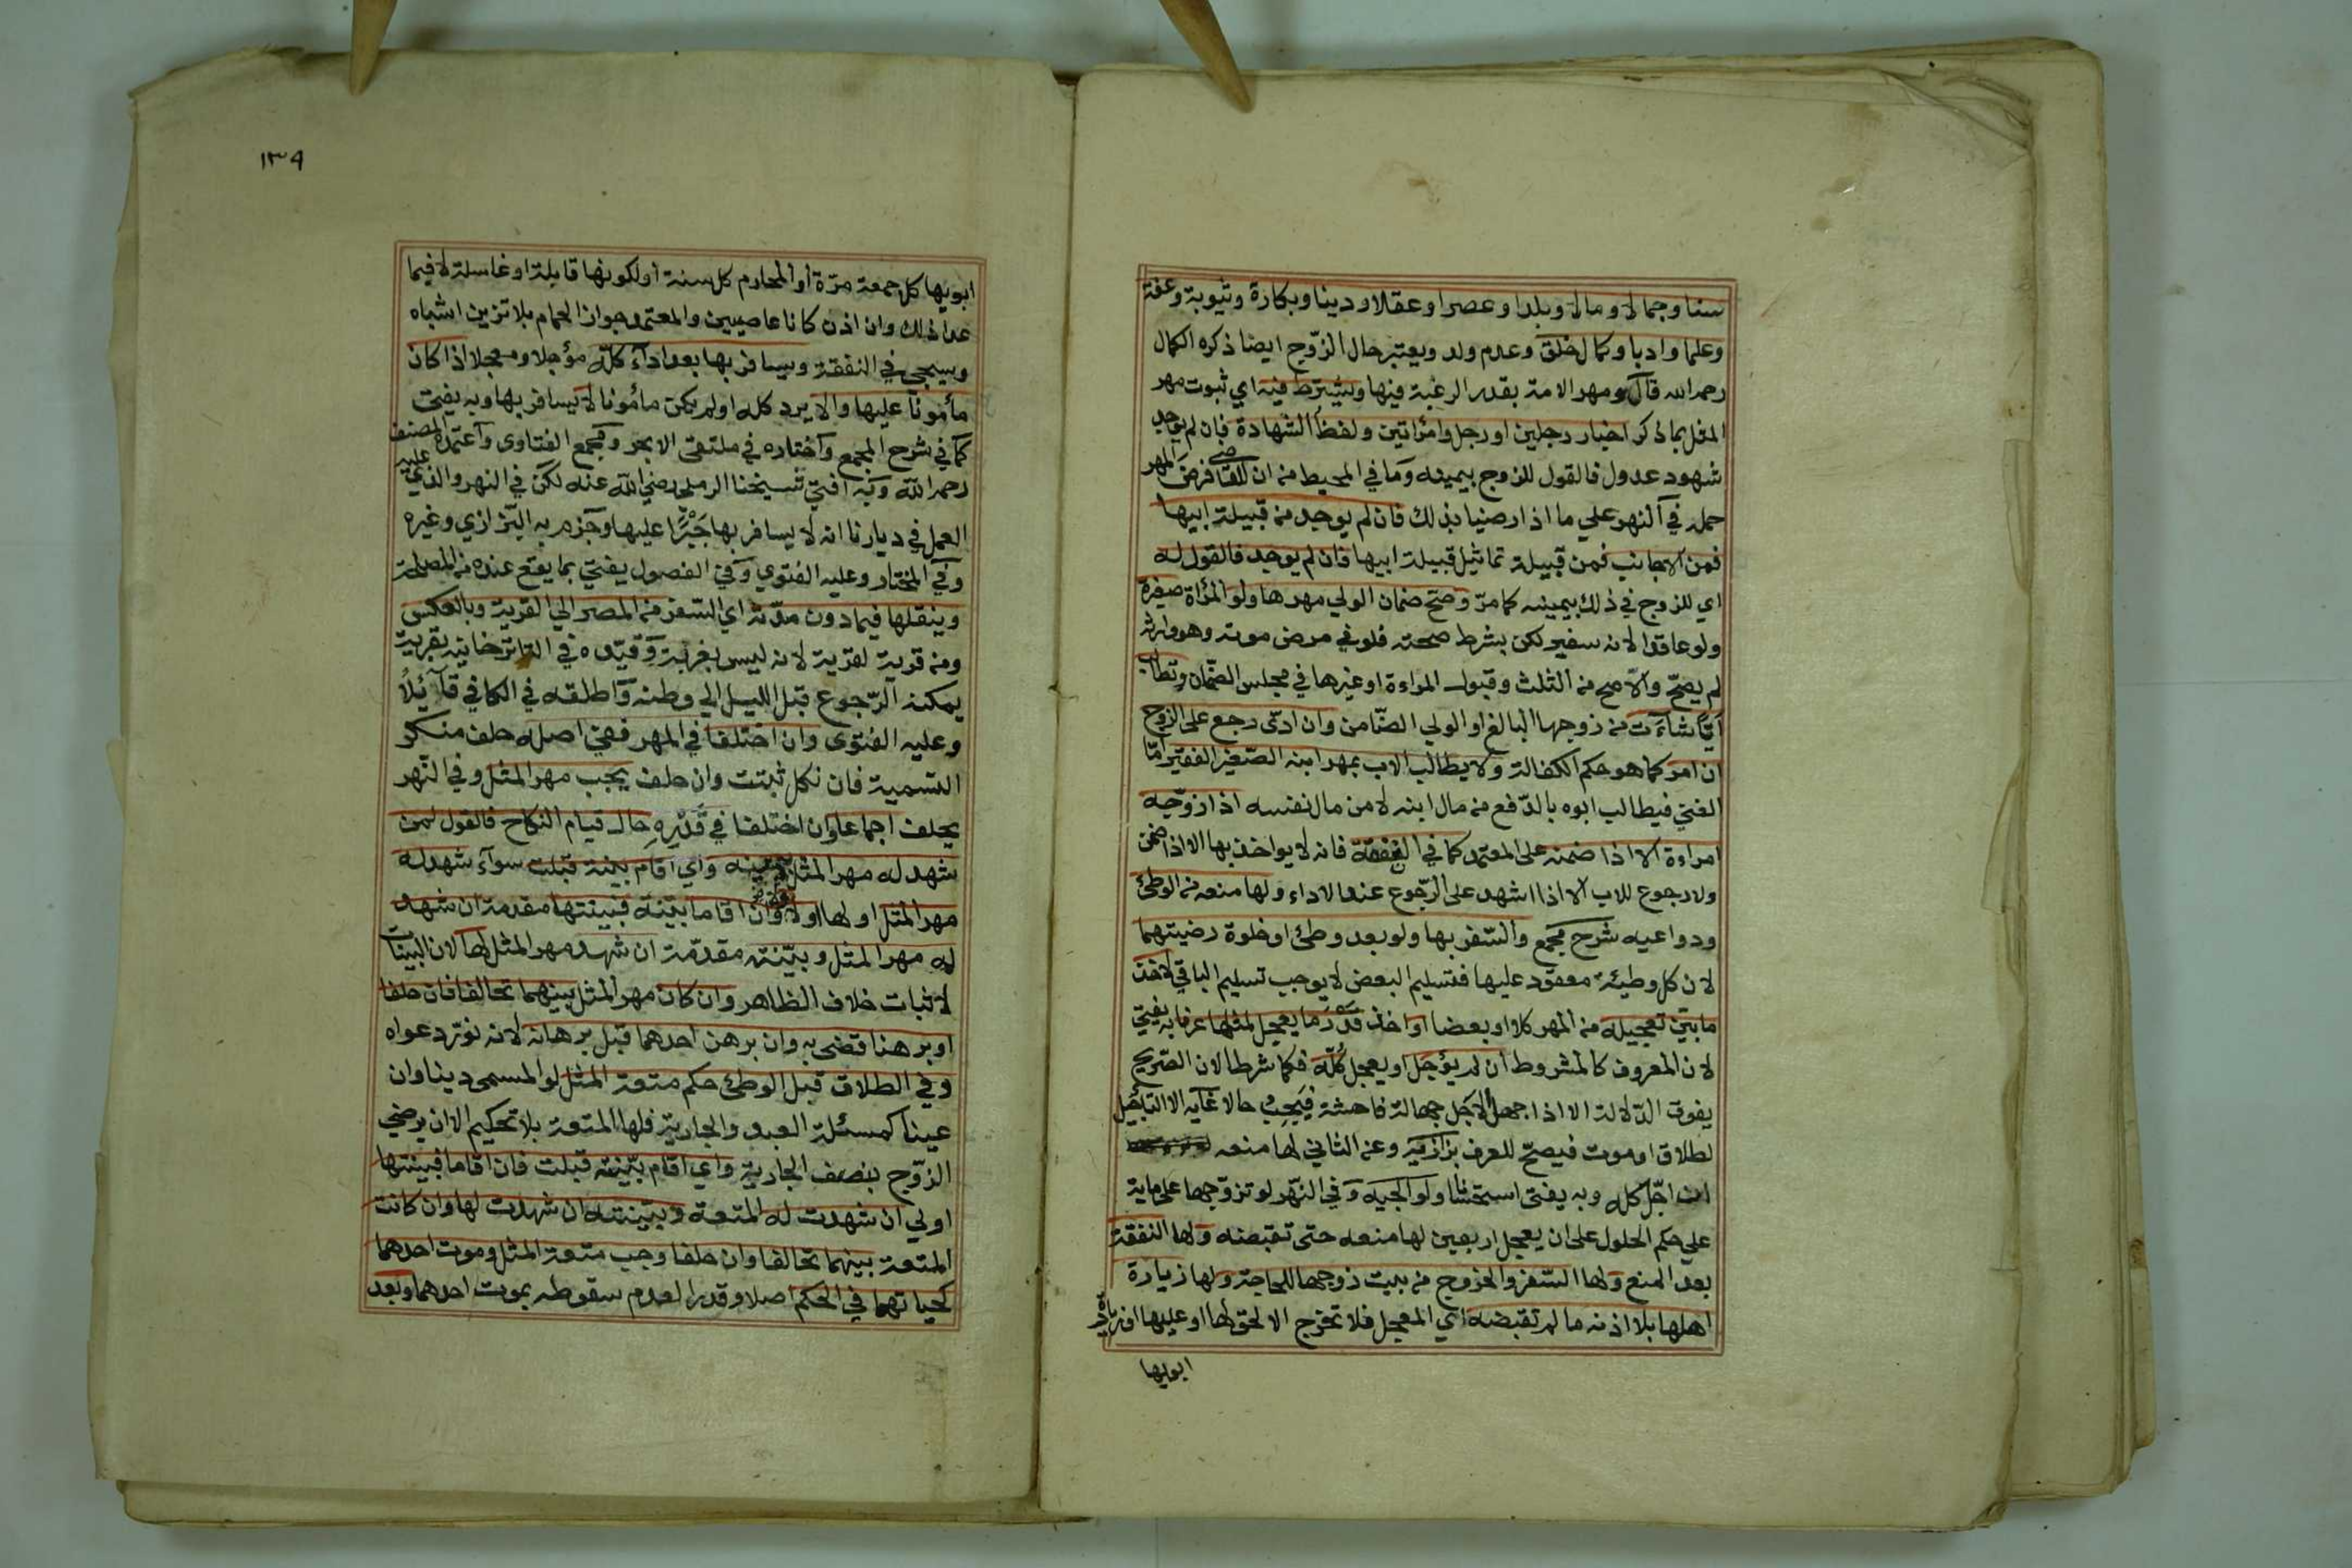 سنا وجمالا ومالا وبلدا وعصرا وعقلا ودينا وبكارة وثيوبة وعفة
وعلما وادبا وكمال خلق وعدم ولد ويعتبر حال الزوّج ايضا ذكره الكمال
رحمه الله قال ومهر الامة بقدر الرغبة فيها ويشترط فيه اي ثبوت مهر
المثل بما ذكر اخبار رجلين او رجل وامرأتين ولفظ الشهادة فان لم يوجد
شهود عدول فالقول للزوج بيمينه وما في المحيط من ان للقاضي فرض المهر
حمله في النهر علي ما اذا رضيا بذلك فان لم يوجد من قبيلة ابيها
فمن الاجانب فمن قبيلة تماثيل قبيلة ابيها فان لم يوجد فالقول له
اي للزوج في ذلك بيمينه كما مرّ وصح ضمان الولي مهرها ولو المرأة صغيرة
ولو عاقدا لانه سفير لكن بشرط صحته فلو في مرض موته وهو وارثه
لم يصحّ والاّ صح من الثلث وقبول المراءة او غيرها في مجلس الضّمان وتطالب
ايّا شاءت من زوجها البالغ او الولي الضّامن وان ادّى رجع على الزوج
ان امر كما هو حكم الكفالة ولا يطالب الاب بمهر ابنه الصّغير الفقير امّا
الغني فيطالب ابوه بالدّفع من مال ابنه لا من مال نفسه اذا زوّجه
امراءة الا اذا ضمنه على المعتمد كما في النفقة فانه لا يواخذ بها الا اذا ضمن
ولا رجوع للاب الا اذا اشهد على الرّجوع عند الاداء ولها منعه من الوطئ
ودواعيه شرح مجمع والسّفر بها ولو بعد وطئ او خلوة رضيتهما
لان كل وطيئة معقود عليها فتسليم البعض لا يوجب تسليم الباقي لاخذ
ما بيّن تعجيله من المهر كلا او بعضا او اخذ قدر ما يعجل لمثلها عرفا به يفتي
لان المعروف كالمشروط ان لم يؤجل او يعجل كلّه فكما شرطا لان الصّريح
يفوق الدّلالة الا اذا جهل الاجل جهالة فاحشة فيجب حالا غايه الا التأجيل
لطلاق او موت فيصحّ للعرف بزازيه وعن الثاني لها منعه
ان اجّل كله وبه يفتى استحسانا ولوالجيه وفي النّهر لو تزوّجها على ماية
علي حكم الحلول على ان يعجل اربعين لها منعه حتى تقبضه ولها النفقة
بعد المنع ولها السّفر والخروج من بيت زوجها للحاجة ولها زيارة
اهلها بلا اذنه ما لم تقبضه اي المعجل فلا تخرج الا لحق لها او عليها او زيارة
ابويها
١٣٩
ابويها كل جمعة مرّة أو المحارم كل سنة أو لكونها قابلة او غاسلة لا فيما
عدا ذلك وان اذن كانا عاصيين والمعتمد جواز الحمام بلا تزين اشباه
وسيجي في النفقة ويسافر بها بعد اداء كلّه مؤجلا ومعجلا اذا كان
مأمونا عليها والا يرد كله او لم يكن مأمونا لا يسافر بها وبه يفتى
كما في شرح المجمع واختاره في ملتقى الابحر ومجمع الفتاوى واعتمده المصنف
رحمه الله وبه افتى شيخنا الرملي رضي الله عنه لكن في النهر والذي عليه
العمل في ديارنا انه لا يسافر بها جبرًا عليها وجزم به البزازي وغيره
وفي المختار وعليه الفتوي وفي الفصول يفتي بما يقع عنده من المصلحة
وينقلها فيما دون مدّته اي السّفر من المصر الي القرية وبالعكس
ومن قرية لقرية لانه ليس بغربة وقيّده في التاترخانيه بقرية
يمكنه الرّجوع قبل الليل الي وطنه واطلقه في الكافي قائلًا
وعليه الفتوى وان اختلفا في المهر ففي اصله حلف منكر
التسمية فان نكل ثبتت وان حلف يجب مهر المثل وفي النّهر
يحلف اجماعا وان اختلفا في قدره حال قيام النكاح فالقول لمن
شهد له مهر المثل بيمينه واي اقام بينة قبلت سوآء شهد له
مهر المثل او لها او لا وان اقاما بيّنة فبينتها مقدمة ان شهد
له مهر المثل وبيّنته مقدّمة ان شهد مهر المثل لها لان البينات
لاثبات خلاف الظاهر وان كان مهر المثل بينهما تحالفا فان حلفا
او برهنا قضى به وان برهن احدهما قبل برهانه لانه نوّر دعواه
وفي الطلاق قبل الوطئ حكم متعة المثل لو المسمى دينا وان
عينا كمسئلة العبد والجارية فلها المتعة بلا تحكيم الا ان يرضي
الزوّج بنصف الجارية واي اقام بيّنة قبلت فان اقاما فبينتها
اولي ان شهدت له المتعة وبيّنته ان شهدت لها وان كانت
المتعة بينهما تحالفا وان حلفا وجب متعة المثل وموت احدهما
كحياتهما في الحكم اصلا وقدرا لعدم سقوطه بموت احدهما وبعد